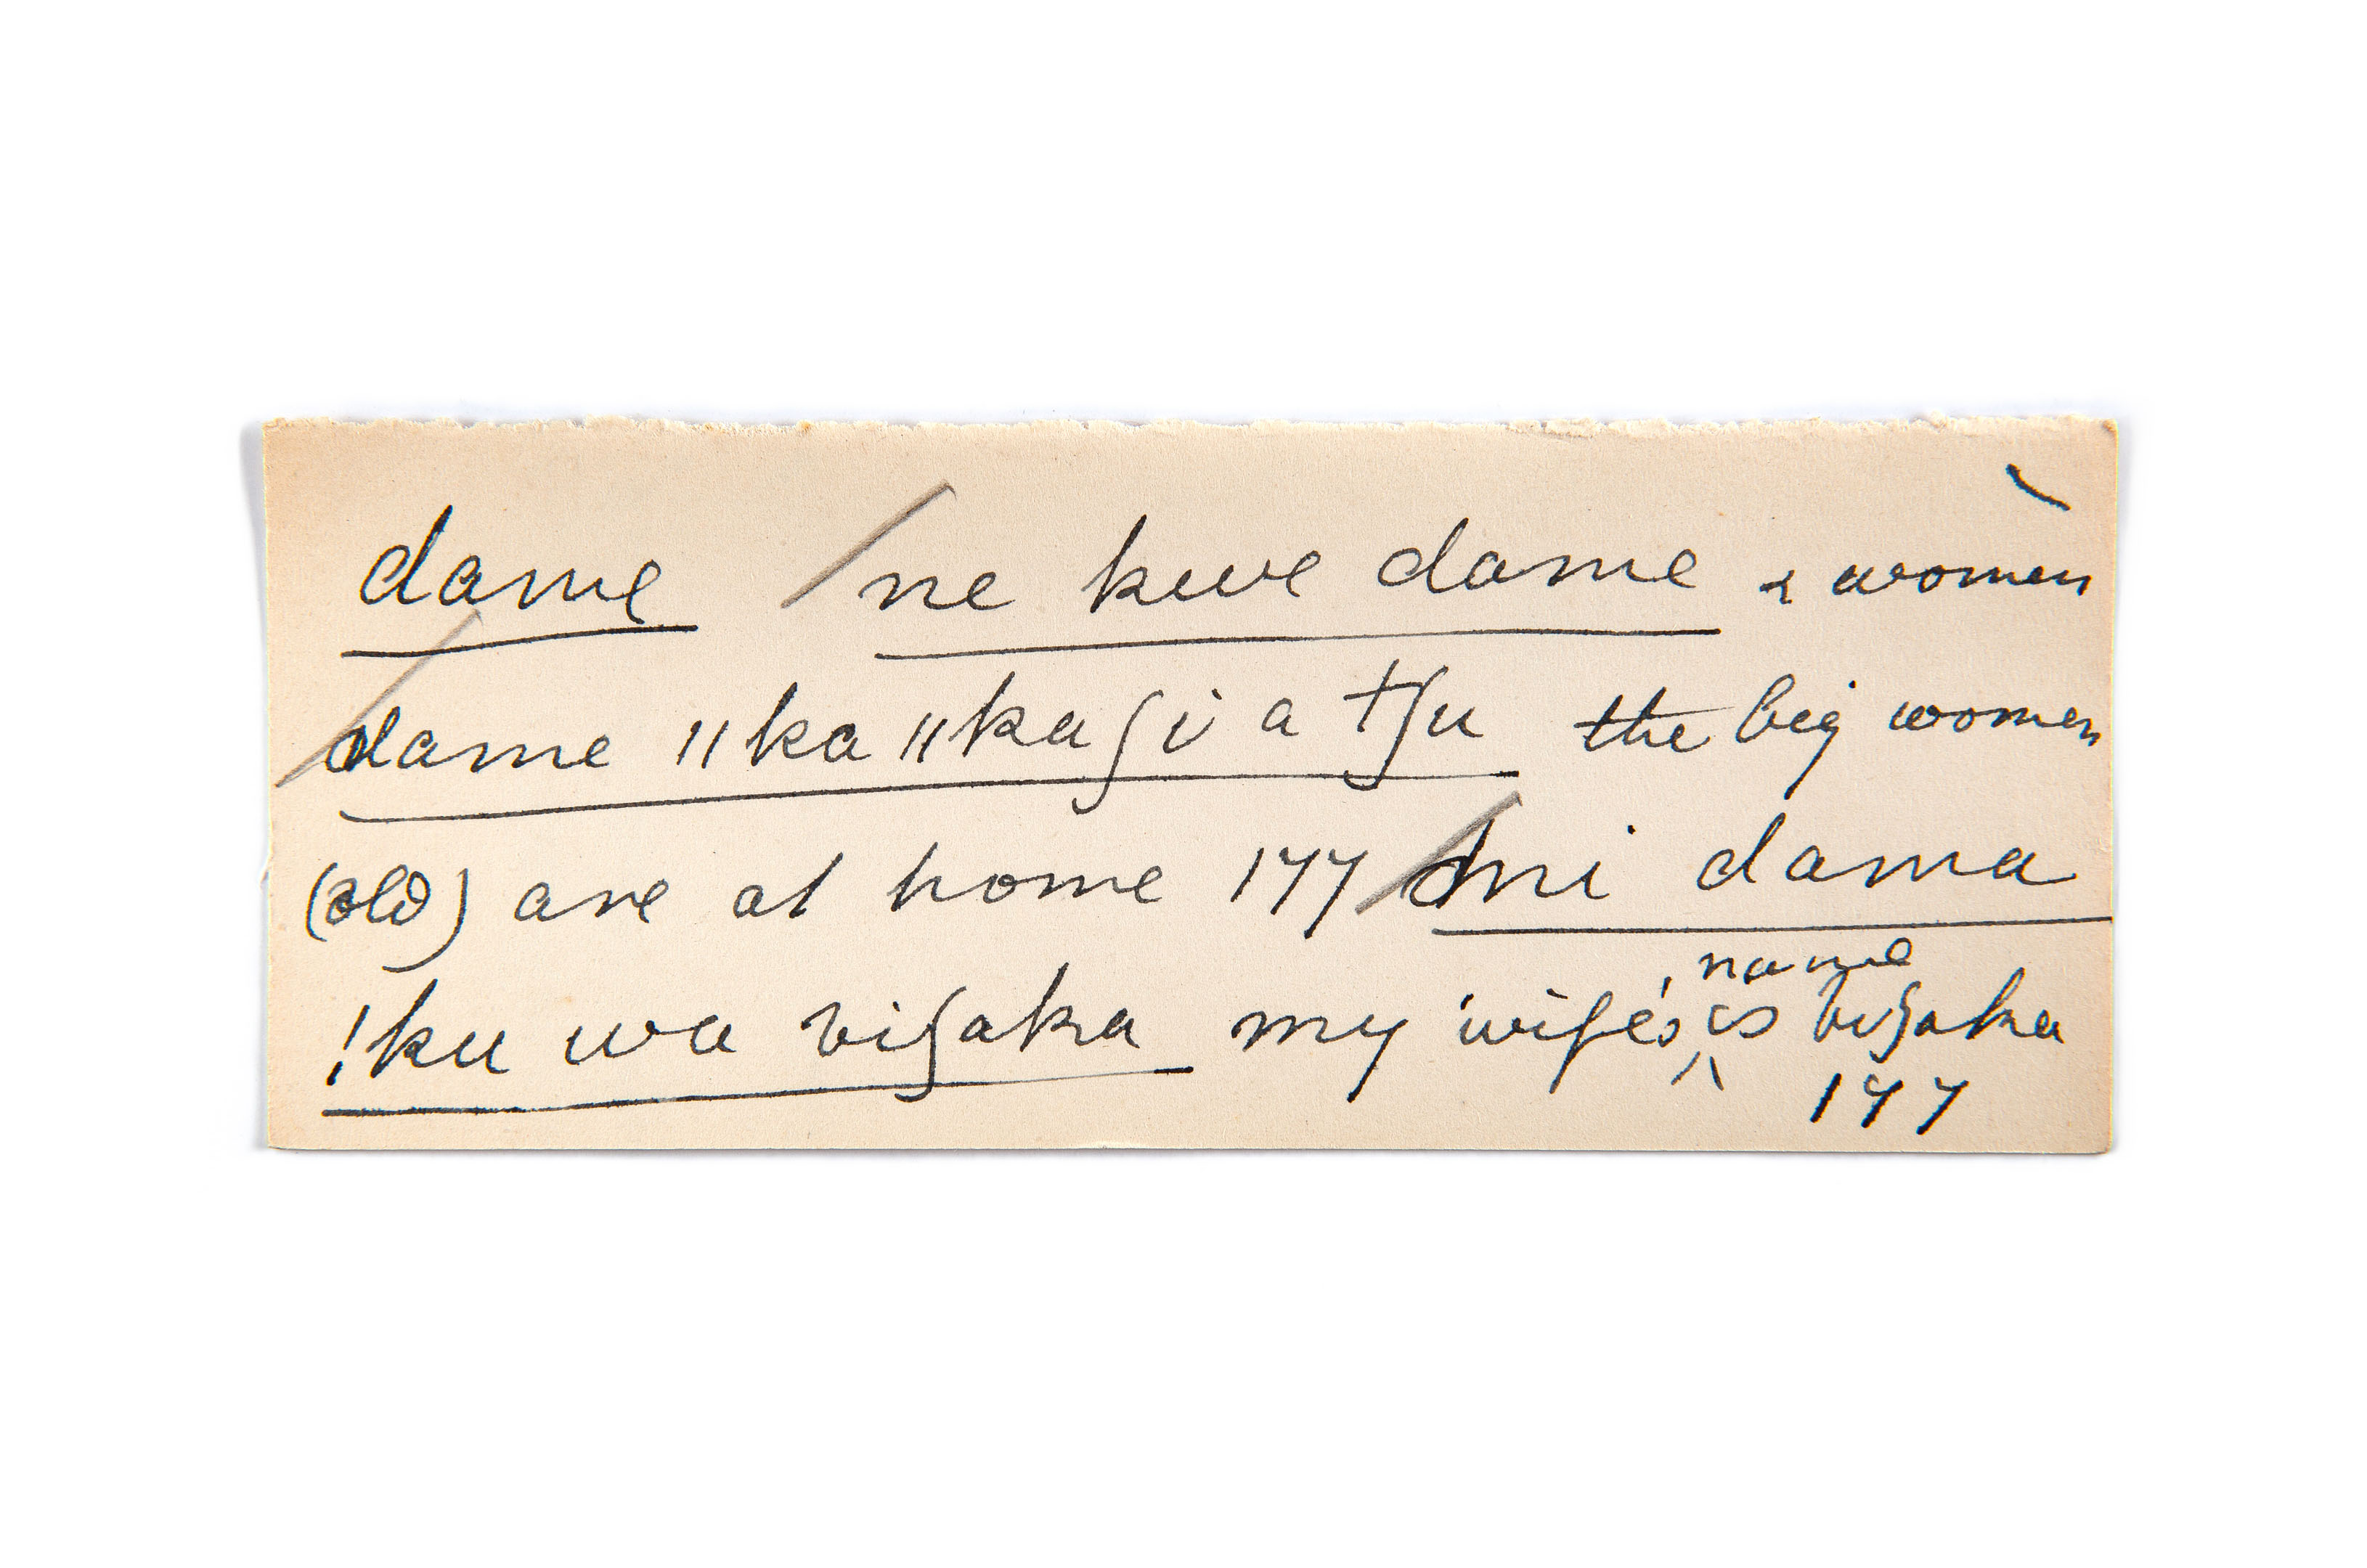 dame ne kwe dame 2 women
dame ǁka ǁkaʃi a tʃu the big women
(old) are at home 177 mi dama
name
!ku wa viʃaka my wife's ‸ is biʃaka
177